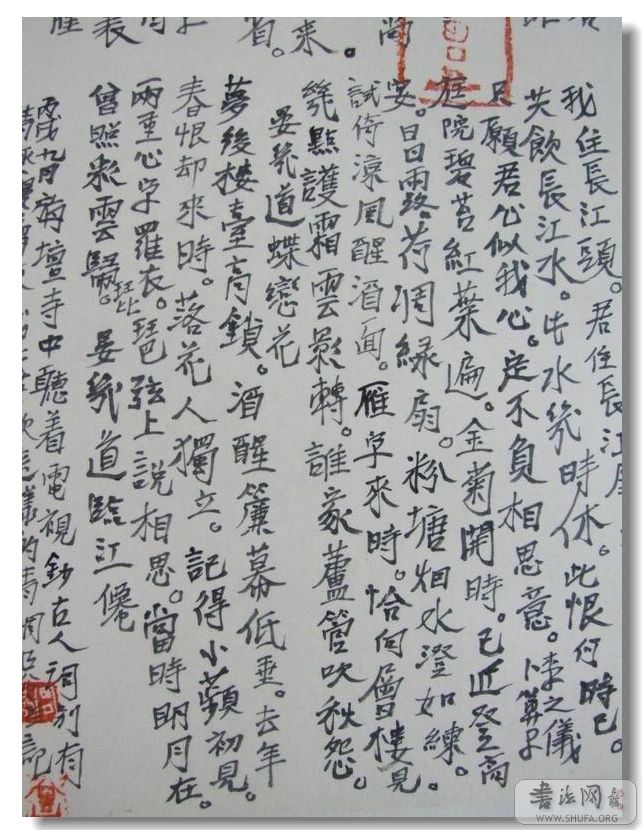 來。
省。
我住長江頭。君住長江
共飲長江水。此水幾時休。此恨何時已。
只願君心似我心。定不負相思意。李之儀卜算子
庭院碧苔紅葉遍。金菊開時。已近登高
宴。日日露荷凋緑扇。粉塘烟水澄如練。
試倚涼風醒酒面。雁字來時。恰向層樓見。
幾點護霜雲影轉。誰家蘆管吹秋怨。
晏幾道蝶戀花
夢後樓臺高鎖。酒醒簾幕低垂。去年
春恨却來時。落花人獨立。記得小蘋初見。
兩重心字羅衣。琵琶弦上說相思。當時明月在。
曾照彩雲歸。晏幾道臨江僊
九月 壇寺中聽着電視鈔古人詞別有
記
書法网
WWW.SHUFA.ORG